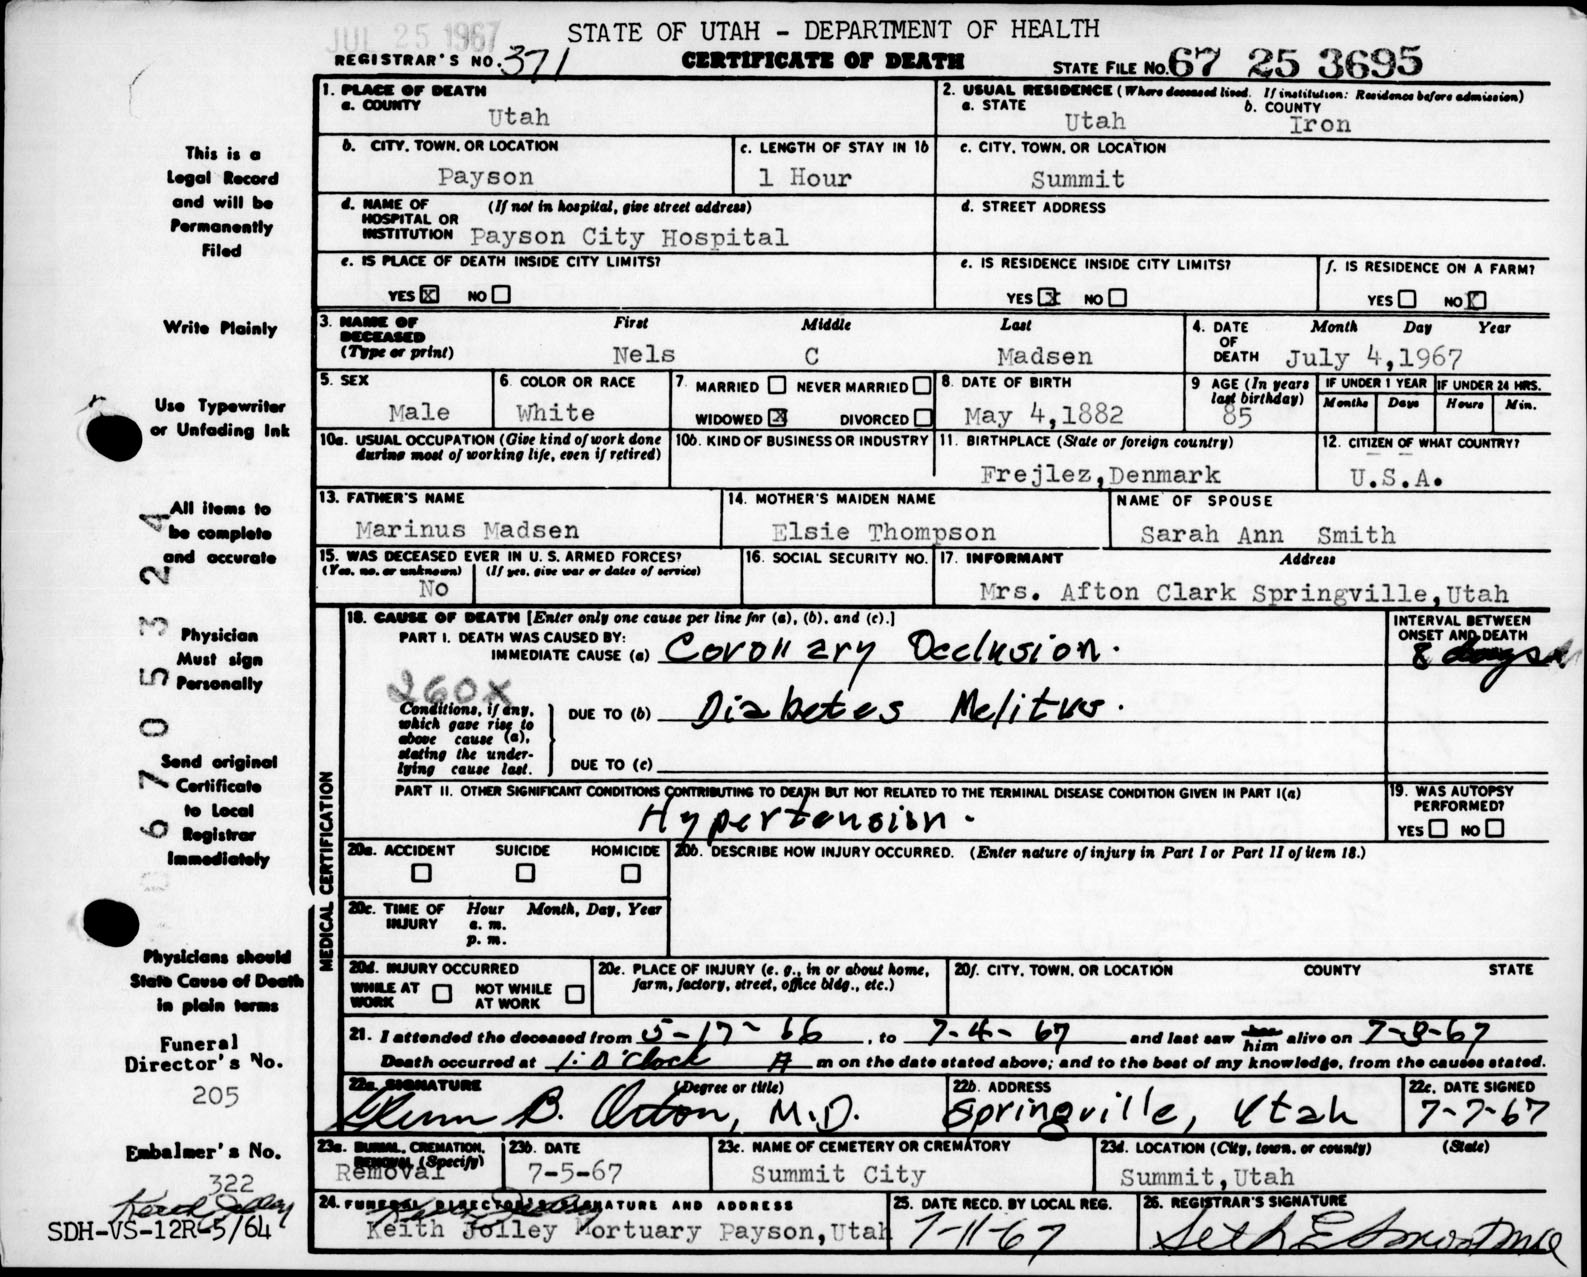 JUL 25 1967
STATE OF UTAH - DEPARTMENT OF HEALTH
REGISTRAR'S NO. 371
CERTIFICATE OF DEATH
STATE FILE NO. 67 25 3695
1. PLACE OF DEATH
a. COUNTY
Utah
2. USUAL RESIDENCE (Where deceased lived. If institution: Residence before admission)
a. STATE
Utah
b. COUNTY
Iron
b. CITY, TOWN, OR LOCATION
Payson
c. LENGTH OF STAY IN 1b
1 Hour
c. CITY, TOWN, OR LOCATION
Summit
d. NAME OF HOSPITAL OR INSTITUTION
(If not in hospital, give street address)
Payson City Hospital
d. STREET ADDRESS
e. IS PLACE OF DEATH INSIDE CITY LIMITS?
YES X NO
e. IS RESIDENCE INSIDE CITY LIMITS?
YES X NO
f. IS RESIDENCE ON A FARM?
YES NO X
3. NAME OF DECEASED (Type or print)
First Middle Last
Nels C Madsen
4. DATE OF DEATH
Month Day Year
July 4,1967
5. SEX
Male
6. COLOR OR RACE
White
7. MARRIED NEVER MARRIED
WIDOWED X DIVORCED
8. DATE OF BIRTH
May 4,1882
9 AGE (In years last birthday)
85
IF UNDER 1 YEAR
Months Days
IF UNDER 24 HRS.
Hours Min.
10a. USUAL OCCUPATION (Give kind of work done during most of working life, even if retired)
10b. KIND OF BUSINESS OR INDUSTRY
11. BIRTHPLACE (State or foreign country)
Frejlez,Denmark
12. CITIZEN OF WHAT COUNTRY?
U.S.A.
13. FATHER'S NAME
Marinus Madsen
14. MOTHER'S MAIDEN NAME
Elsie Thompson
NAME OF SPOUSE
Sarah Ann Smith
15. WAS DECEASED EVER IN U. S. ARMED FORCES?
(Yes, no, or unknown) (If yes, give war or dates of service)
No
16. SOCIAL SECURITY NO.
17. INFORMANT Address
Mrs. Afton Clark Springville,Utah
MEDICAL CERTIFICATION
18. CAUSE OF DEATH [Enter only one cause per line for (a), (b), and (c).]
PART I. DEATH WAS CAUSED BY:
IMMEDIATE CAUSE (a) Coronary Occlusion.
INTERVAL BETWEEN ONSET AND DEATH
8 days
260X
Conditions, if any, which gave rise to above cause (a), stating the underlying cause last.
DUE TO (b) Diabetes Melitus.
DUE TO (c)
PART II. OTHER SIGNIFICANT CONDITIONS CONTRIBUTING TO DEATH BUT NOT RELATED TO THE TERMINAL DISEASE CONDITION GIVEN IN PART I(a)
Hypertension.
19. WAS AUTOPSY PERFORMED?
YES NO
20a. ACCIDENT SUICIDE HOMICIDE
20b. DESCRIBE HOW INJURY OCCURRED. (Enter nature of injury in Part I or Part II of item 18.)
20c. TIME OF INJURY
Hour Month, Day, Year
a. m.
p. m.
20d. INJURY OCCURRED
WHILE AT WORK NOT WHILE AT WORK
20e. PLACE OF INJURY (e. g., in or about home, farm, factory, street, office bldg., etc.)
20f. CITY, TOWN, OR LOCATION COUNTY STATE
21. I attended the deceased from 5-17-66, to 7-4-67 and last saw her him alive on 7-3-67
Death occurred at 1: O'Clock A m on the date stated above; and to the best of my knowledge, from the causes stated.
22a. SIGNATURE (Degree or title)
Glenn B. Orton, M.D.
22b. ADDRESS
Springville, Utah
22c. DATE SIGNED
7-7-67
23a. BURIAL, CREMATION, REMOVAL (Specify)
Removal
23b. DATE
7-5-67
23c. NAME OF CEMETERY OR CREMATORY
Summit City
23d. LOCATION (City, town, or county) (State)
Summit,Utah
24. FUNERAL DIRECTOR'S SIGNATURE AND ADDRESS
Keith Jolley Mortuary Payson,Utah
25. DATE RECD. BY LOCAL REG.
7-11-67
26. REGISTRAR'S SIGNATURE
This is a
Legal Record
and will be
Permanently
Filed
Write Plainly
Use Typewriter
or Unfading Ink
All items to
be complete
and accurate
Physician
Must sign
Personally
Send original
Certificate
to Local
Registrar
Immediately
Physicians should
State Cause of Death
in plain terms
Funeral
Director's No.
205
Embalmer's No.
322
Keith Jolley
SDH-VS-12R-5/64